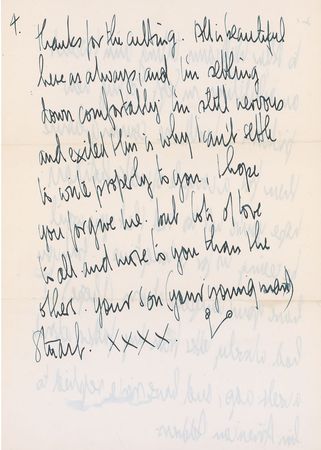 4. thanks for the cutting. All is beautiful
here as always, and i'm settling
down comfortably i'm still nervous
and exited this is why I can't settle
to write properly to you, I hope
you forgive me. but lots of love
to all and more to you than the
other. your son (your young man)
Stuart. XXXX.